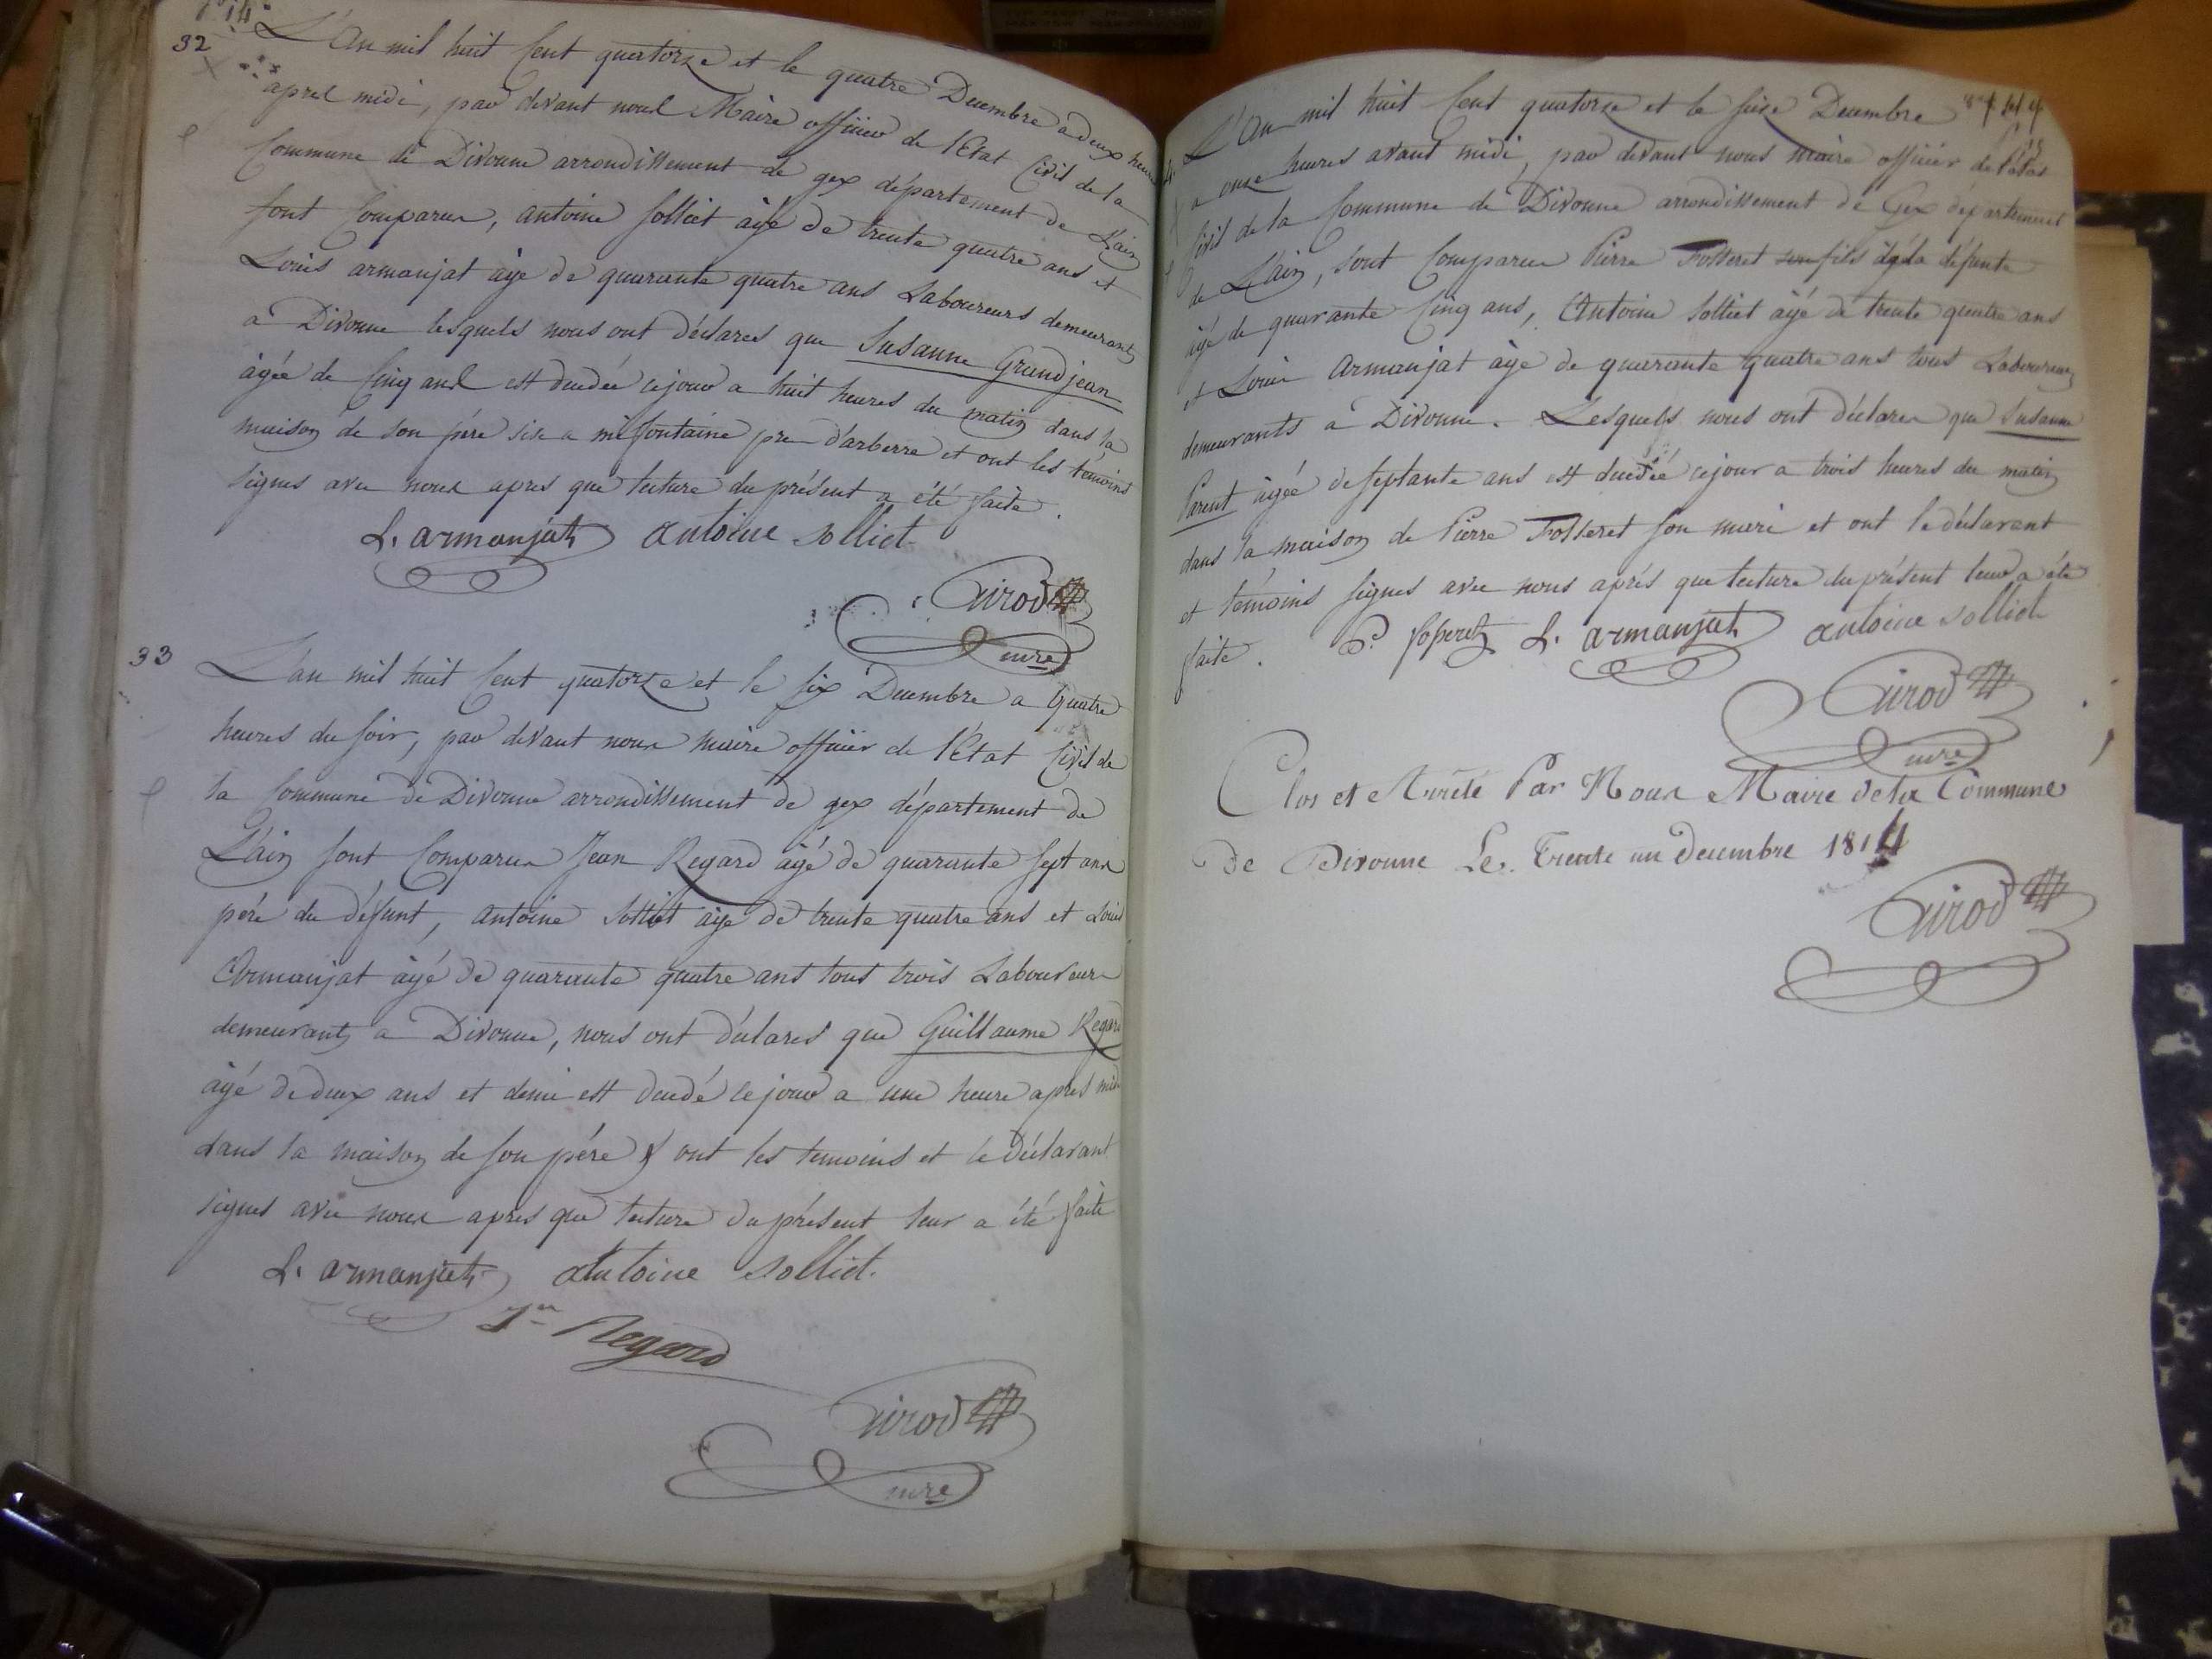 32
L'An mil huit Cent quatorze et le quatre Decembre a deux heures
apres midi, par devant nous Maire officier de l'Etat Civil de la
Commune de Divonne arrondissement de gex département de L'ain
sont Comparus, antoine Solliet agé de trente quatre ans et
Louis armanjat agé de quarante quatre ans Laboureurs demeurants
a Divonne lesquels nous ont déclares que Susanne Grandjean
agée de Cinq ans est decedée ce jour a huit heures du matin dans la
maison de son père sise a mifontaine pres d'arberre et ont les témoins
signes avec nous apres que lecture du présent a été faite.
L. armanjat antoine Solliet
Girod
mre
33
L'an mil huit Cent quatorze et le six Decembre a quatre
heures du soir, par devant nous maire officier de l'Etat Civil de
la Commune de Divonne arrondissement de gex département de
L'ain sont Comparus Jean Regard agé de quarante sept ans
père du défunt, antoine Solliet agé de trente quatre ans et Louis
Armanjat agé de quarante quatre ans tous trois Laboureurs
demeurants a Divonne, nous ont déclares que Guillaume Regard
agé de deux ans et demi est decedé ce jour a une heure apres midi
dans la maison de son père & ont les temoins et le Déclarant
signes avec nous apres que lecture du présent leur a été faite
L. armanjat antoine Solliet.
Jn Regard
Girod
mre
L'An mil huit Cent quatorze et le seize Decembre
a onze heures avant midi, par devant nous maire officier de l'état
Civil de la Commune de Divonne arrondissement de Gex département
de L'ain, sont Comparus Pierre Fosseret de la défunte
agé de quarante Cinq ans, Antoine Solliet agé de trente quatre ans
et Louis Armanjat agé de quarante quatre ans tous Laboureurs
demeurants a Divonne. Lesquels nous ont déclares que Susanne
Parent agée de septante ans est decedée ce jour a trois heures du matin
dans la maison de Pierre Fosseret son mari et ont le déclarant
et témoins signes avec nous aprés que lecture du présent leur a été
faite. P. foseret L. armanjat antoine Solliet
Girod
mre
Clos et Arrêté Par Nous Maire de la Commune
De Divonne Le. Trente un decembre 1814
Girod